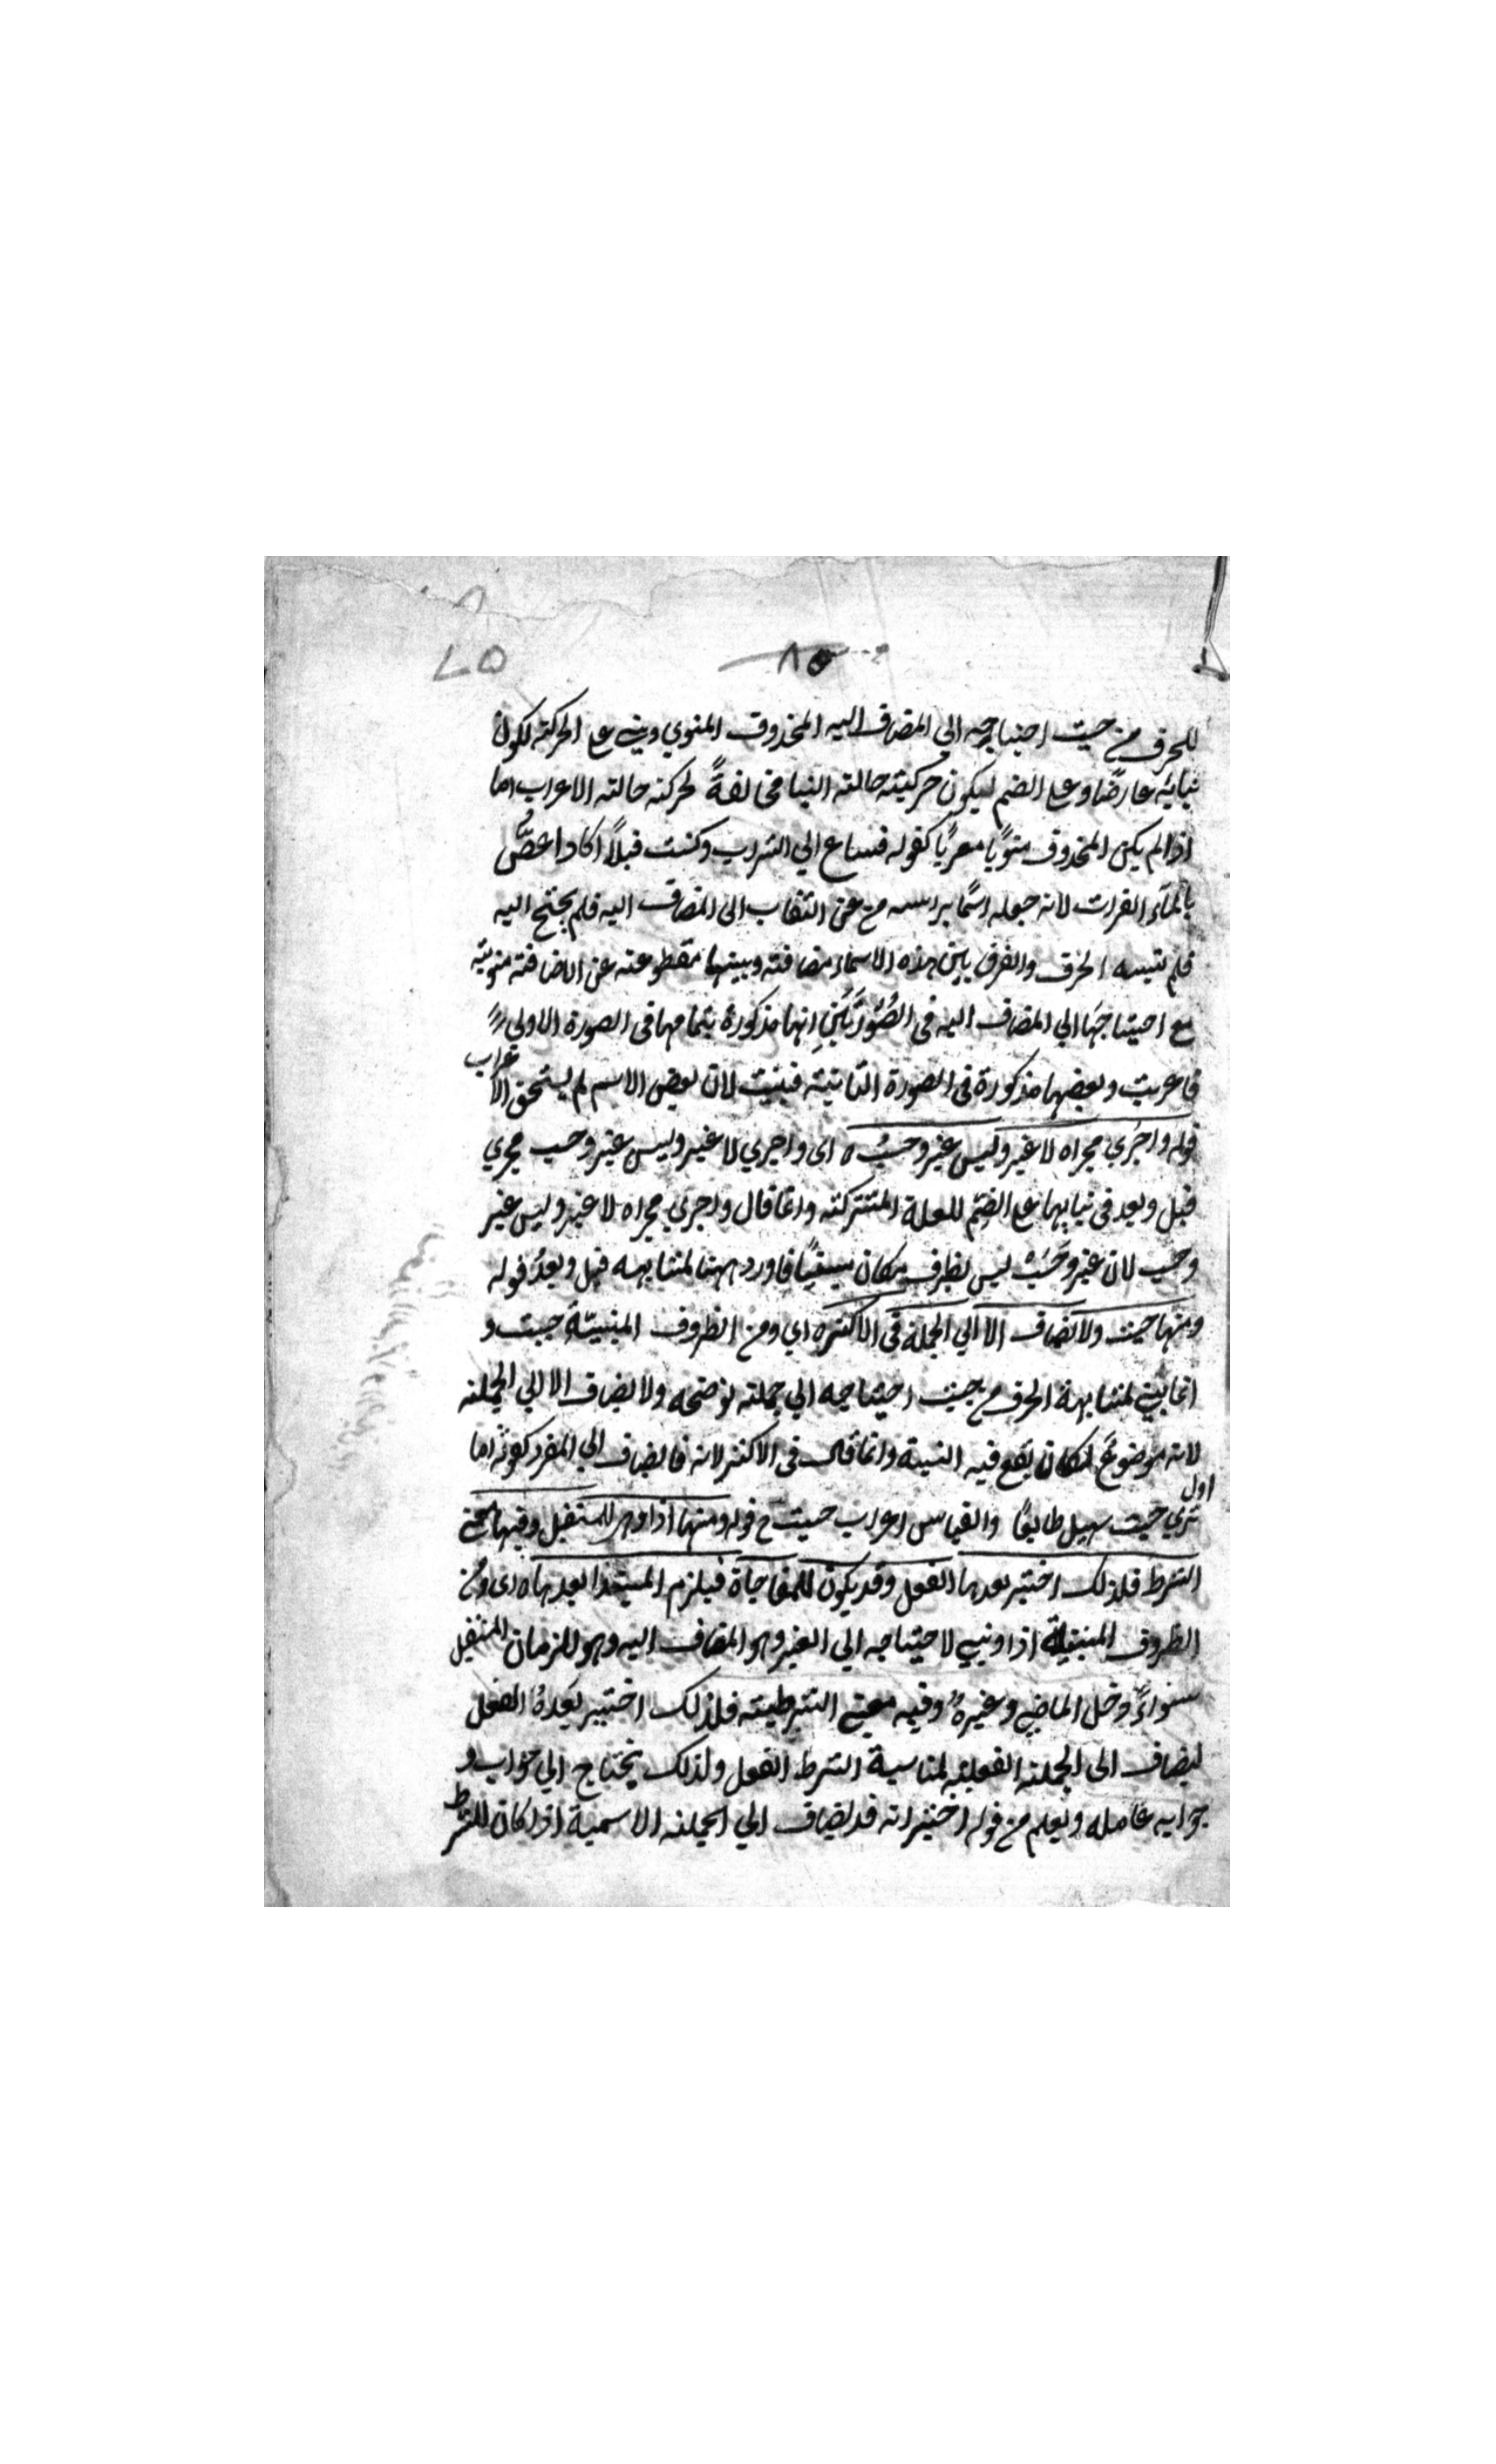 ٨٥
٧٥
للحرف من حيث احتياجه الي المضاف اليه المحذوف المنوي وبني علي الحركة لكون
بنايه عارضًا وعلي الضم ليكون حركته حالة البنا مخالفةً لحركته حالة الاعراب اما
اذا لم يكن المحذوف منويًا معربًا كقوله فساغ الي الشراب وكنت قبلًا اكاد اغصّ
بالمآء الفرات لانه جعله اسمًا براسه من غير التفات الى المضاف اليه فلم يحتج اليه
فلم يشبه الحرف والفرق بين هذه الاسماء مضافة وبينها مقطوعة عن الاضافة منوية
مع احتياجَها الي المضاف اليه في الصُّورتَين انها مذكورة بتمامها في الصورة الاولى
فاعربت وبعضها مذكورة في الصورة الثانية فبنيت لان بعض الاسم لم يستحق الاعراب
قوله واجري مجراه لا غير وليس غير وحسبُ ه اى واجري لا غير وليس غير وحسب مجري
قبل وبعد في بنايهما علي الضم للعلة المشتركة وانما قال واجري مجراه لا غير وليس غير
وحسب لان غير وحَسْبُ ليس بظرف فاورد ههنا لمشابهه قبل وبعدُ قوله
ومنها حيث ولا تضاف الا الي الجملة في الاكثر ه اي ومن الظروف المبنيّة حيث و
انما بني لمشابهة الحرف من حيث احتياجه الي جملة توضحه ولا يضاف الا الي الجملة
لانه موضوع لمكان يقع فيه النسبة وانما قال في الاكثر لانه قد يضاف الي المفرد كقوله اما
تري حيث سهيل طالعًا والقياس اعراب حيث ح قوله ومنها اذا وهي للمستقبل وفيها معنى
اول
الشرط فلذلك اختير بعدها الفعل وقد يكون للمفاجاة فيلزم المبتدا بعدها ه اى ومن
الظروف المبنية اذا وبني لاحتياجه الي الغير وهو المضاف اليه وهو للزمان المستقبل
سواءً دخل الماضي وغيرهُ وفيه معني الشرطية فلذلك اختير بَعدهُ الفعل
ليضاف الى الجملة الفعلية لمناسبة الشرط الفعل ولذلك يحتاج الي جواب و
جوابه عامله ويعلم من قوله اختير انه قد يضاف الي الجملة الاسمية اذا كان للشرط